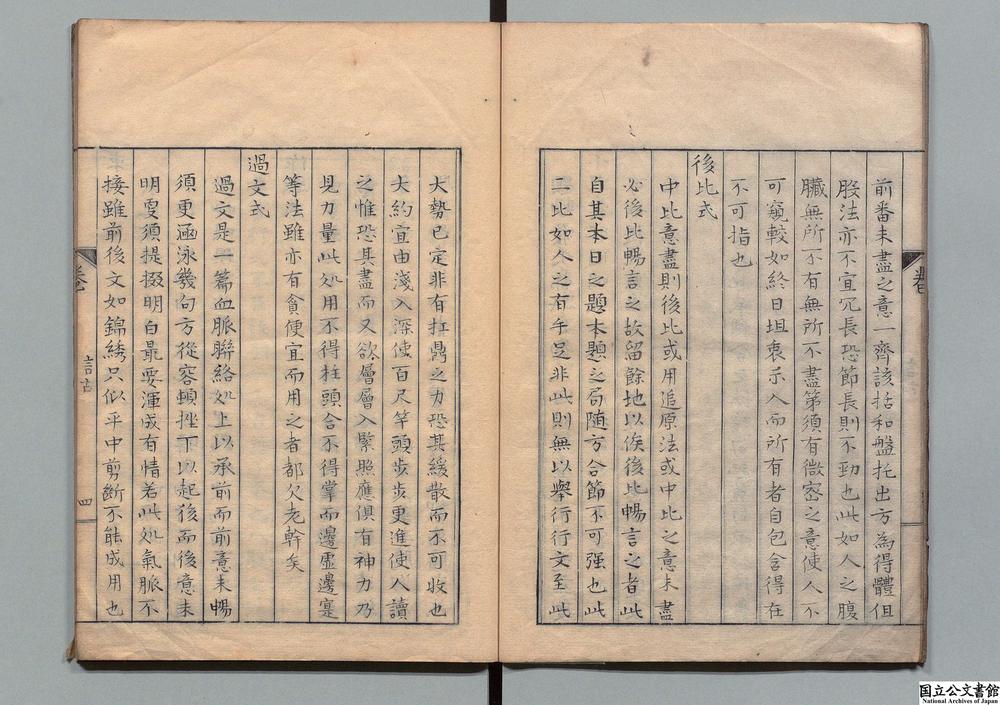 前番未盡之意一齊該括和盤托出方為得體但
股法亦不宜冗長恐節長則不勁也此如人之腹
臟無所不有無所不盡第須有微密之意使人不
可窺較如終日坦衷示人而所有者自包含得在
不可指也
後比式
中比意盡則後比或用追原法或中比之意未盡
必後比暢言之故留餘地以俟後比暢言之者此
自其本日之題本題之局随方合節不可强也此
二比如人之有手足非此則無以舉行行文至此
大勢已定非有扛鼎之力恐其緩散而不可收也
大約宜由淺入深使百尺竿頭步步更進使人讀
之惟恐其盡而又欲層層入緊照應俱有神力乃
見力量此処用不得柱頭合不得掌而邊虛邊寔
等法雖亦有貪便宜而用之者都欠老幹矣
過文式
過文是一篇血脈聯絡処上以承前而前意未暢
須更涵泳幾句方從容頓挫下以起後而後意未
明要須提掇明白最要渾成有情若此処氣脈不
接雖前後文如錦綉只似平中剪斷不能成用也
言古
四
国立公文書館
National Archives of Japan